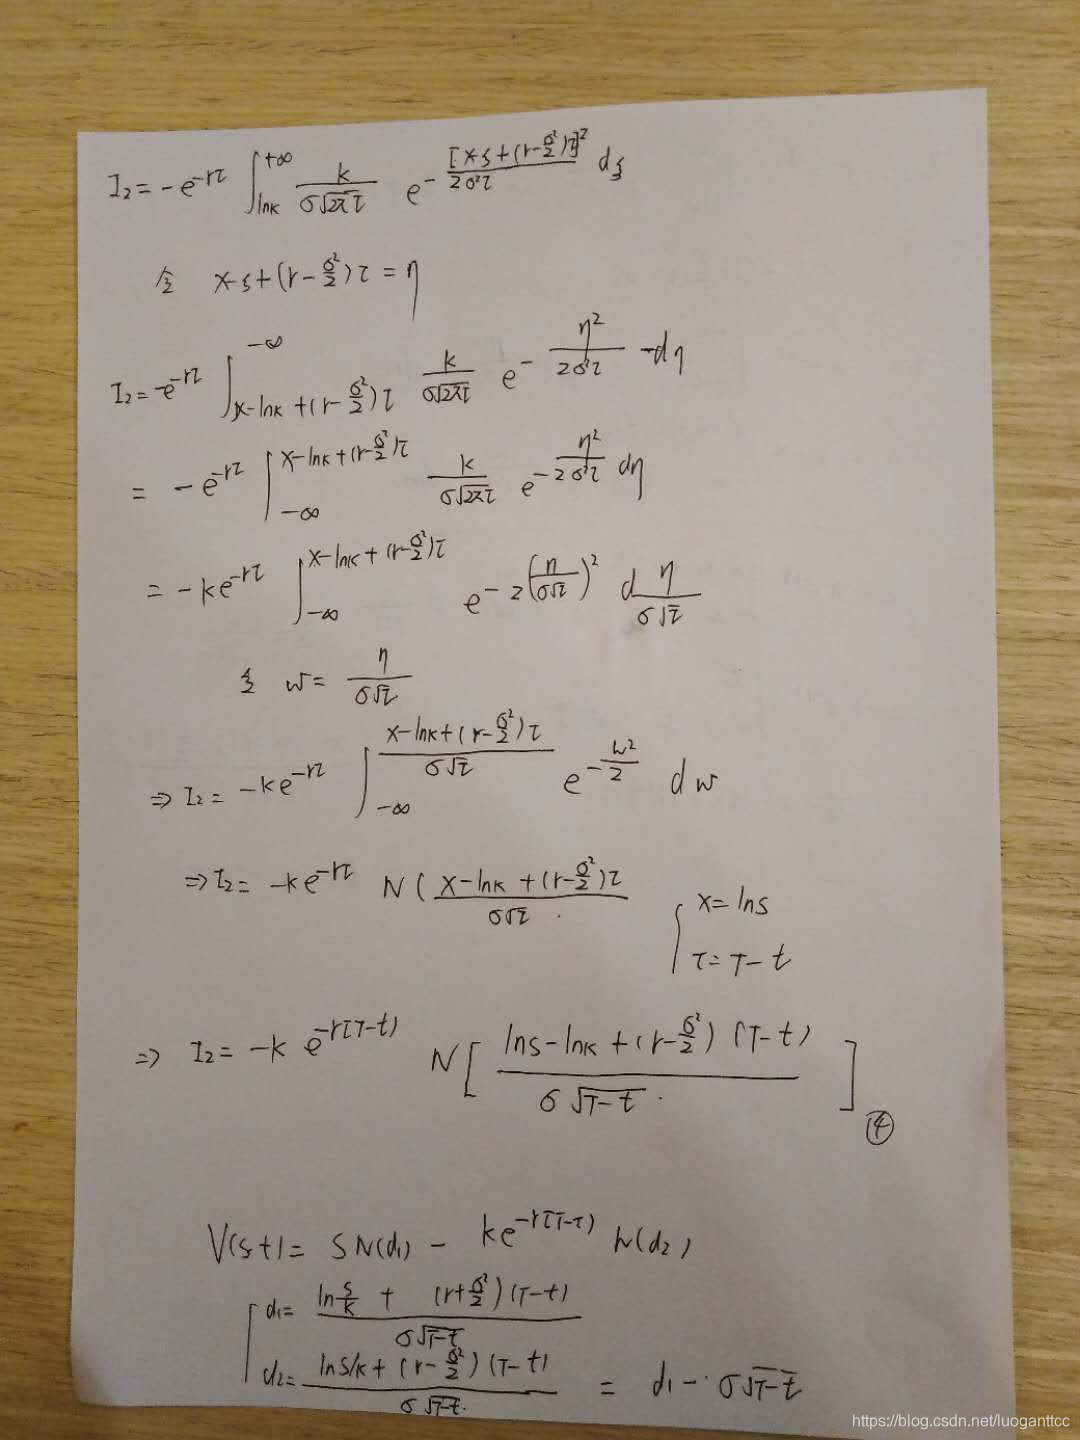 I₂ = -e^{-rτ} ∫_{lnk}^{+∞} \frac{k}{σ\sqrt{2πτ}} e^{-\frac{[x-ξ+(r-\frac{σ²}{2})τ]²}{2σ²τ}} dξ
令 x-ξ+(r-\frac{σ²}{2})τ = η
I₂ = -e^{-rτ} ∫_{x-lnk+(r-\frac{σ²}{2})τ}^{-∞} \frac{k}{σ\sqrt{2πτ}} e^{-\frac{η²}{2σ²τ}} -dη
= -e^{-rτ} ∫_{-∞}^{x-lnk+(r-\frac{σ²}{2})τ} \frac{k}{σ\sqrt{2πτ}} e^{-\frac{η²}{2σ²τ}} dη
= -ke^{-rτ} ∫_{-∞}^{x-lnk+(r-\frac{σ²}{2})τ} e^{-2(\frac{η}{σ\sqrt{τ}})²} d\frac{η}{σ\sqrt{τ}}
令 w = \frac{η}{σ\sqrt{τ}}
⇒ I₂ = -ke^{-rτ} ∫_{-∞}^{\frac{x-lnk+(r-\frac{σ²}{2})τ}{σ\sqrt{τ}}} e^{-\frac{w²}{2}} dw
⇒ I₂ = -ke^{-rτ} N(\frac{x-lnk+(r-\frac{σ²}{2})τ}{σ\sqrt{τ}}
{ x = lns
τ = T-t
⇒ I₂ = -k e^{-r(T-t)} N[\frac{lns-lnk+(r-\frac{σ²}{2})(T-t)}{σ\sqrt{T-t}}]
④
V(s,t) = SN(d₁) - ke^{-r(T-t)} N(d₂)
{ d₁ = \frac{ln\frac{s}{k} + (r+\frac{σ²}{2})(T-t)}{σ\sqrt{T-t}}
d₂ = \frac{lns/k+(r-\frac{σ²}{2})(T-t)}{σ\sqrt{T-t}} = d₁-σ\sqrt{T-t}
https://blog.csdn.net/luoganttcc